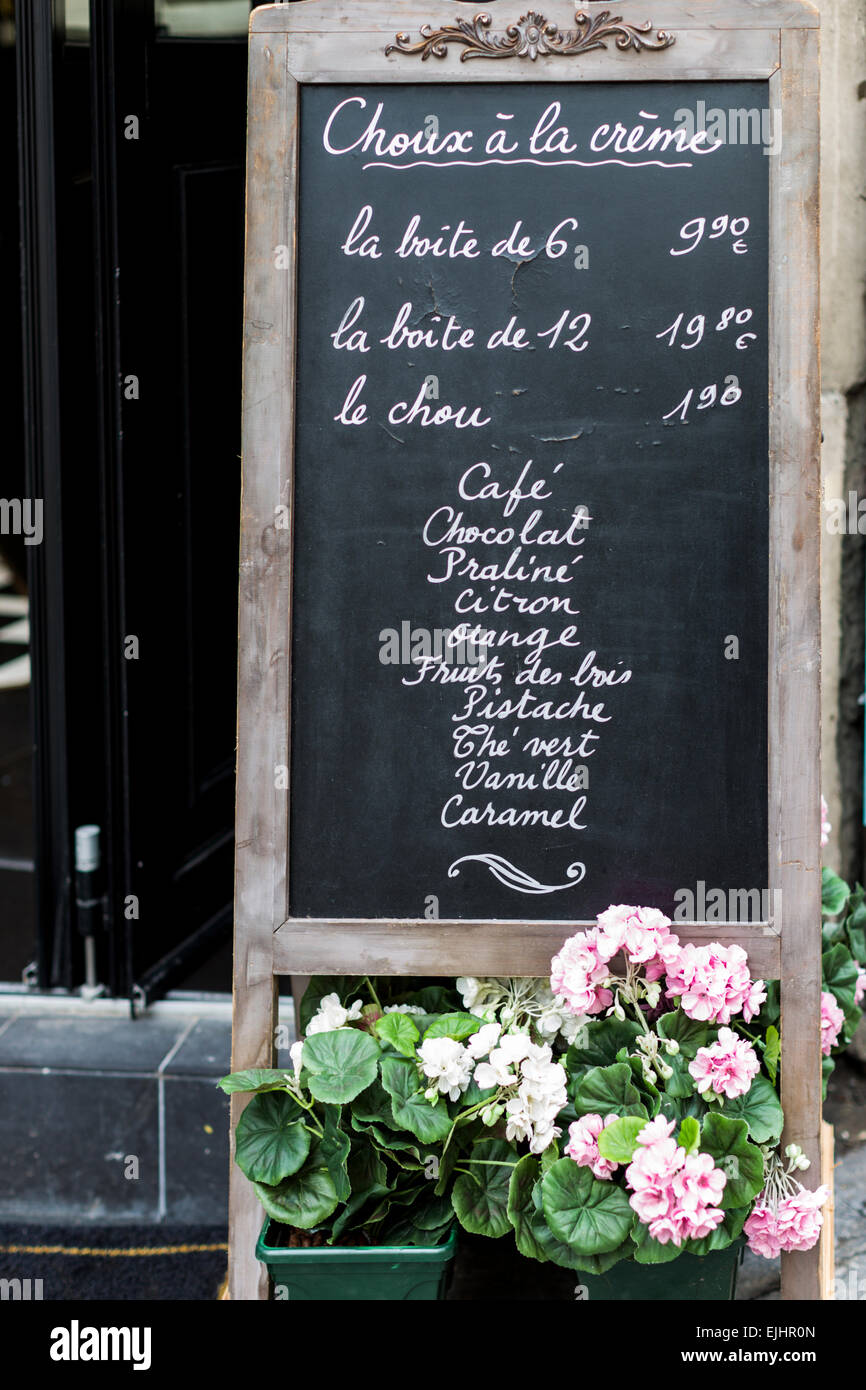 Choux à la crème
la boîte de 6 9 90 €
la boîte de 12 19 80 €
le chou 1 90
Café
Chocolat
Praliné
Citron
Orange
Fruits des bois
Pistache
Thé vert
Vanille
Caramel
alamy stock photo
EJHR0N
www.alamy.com